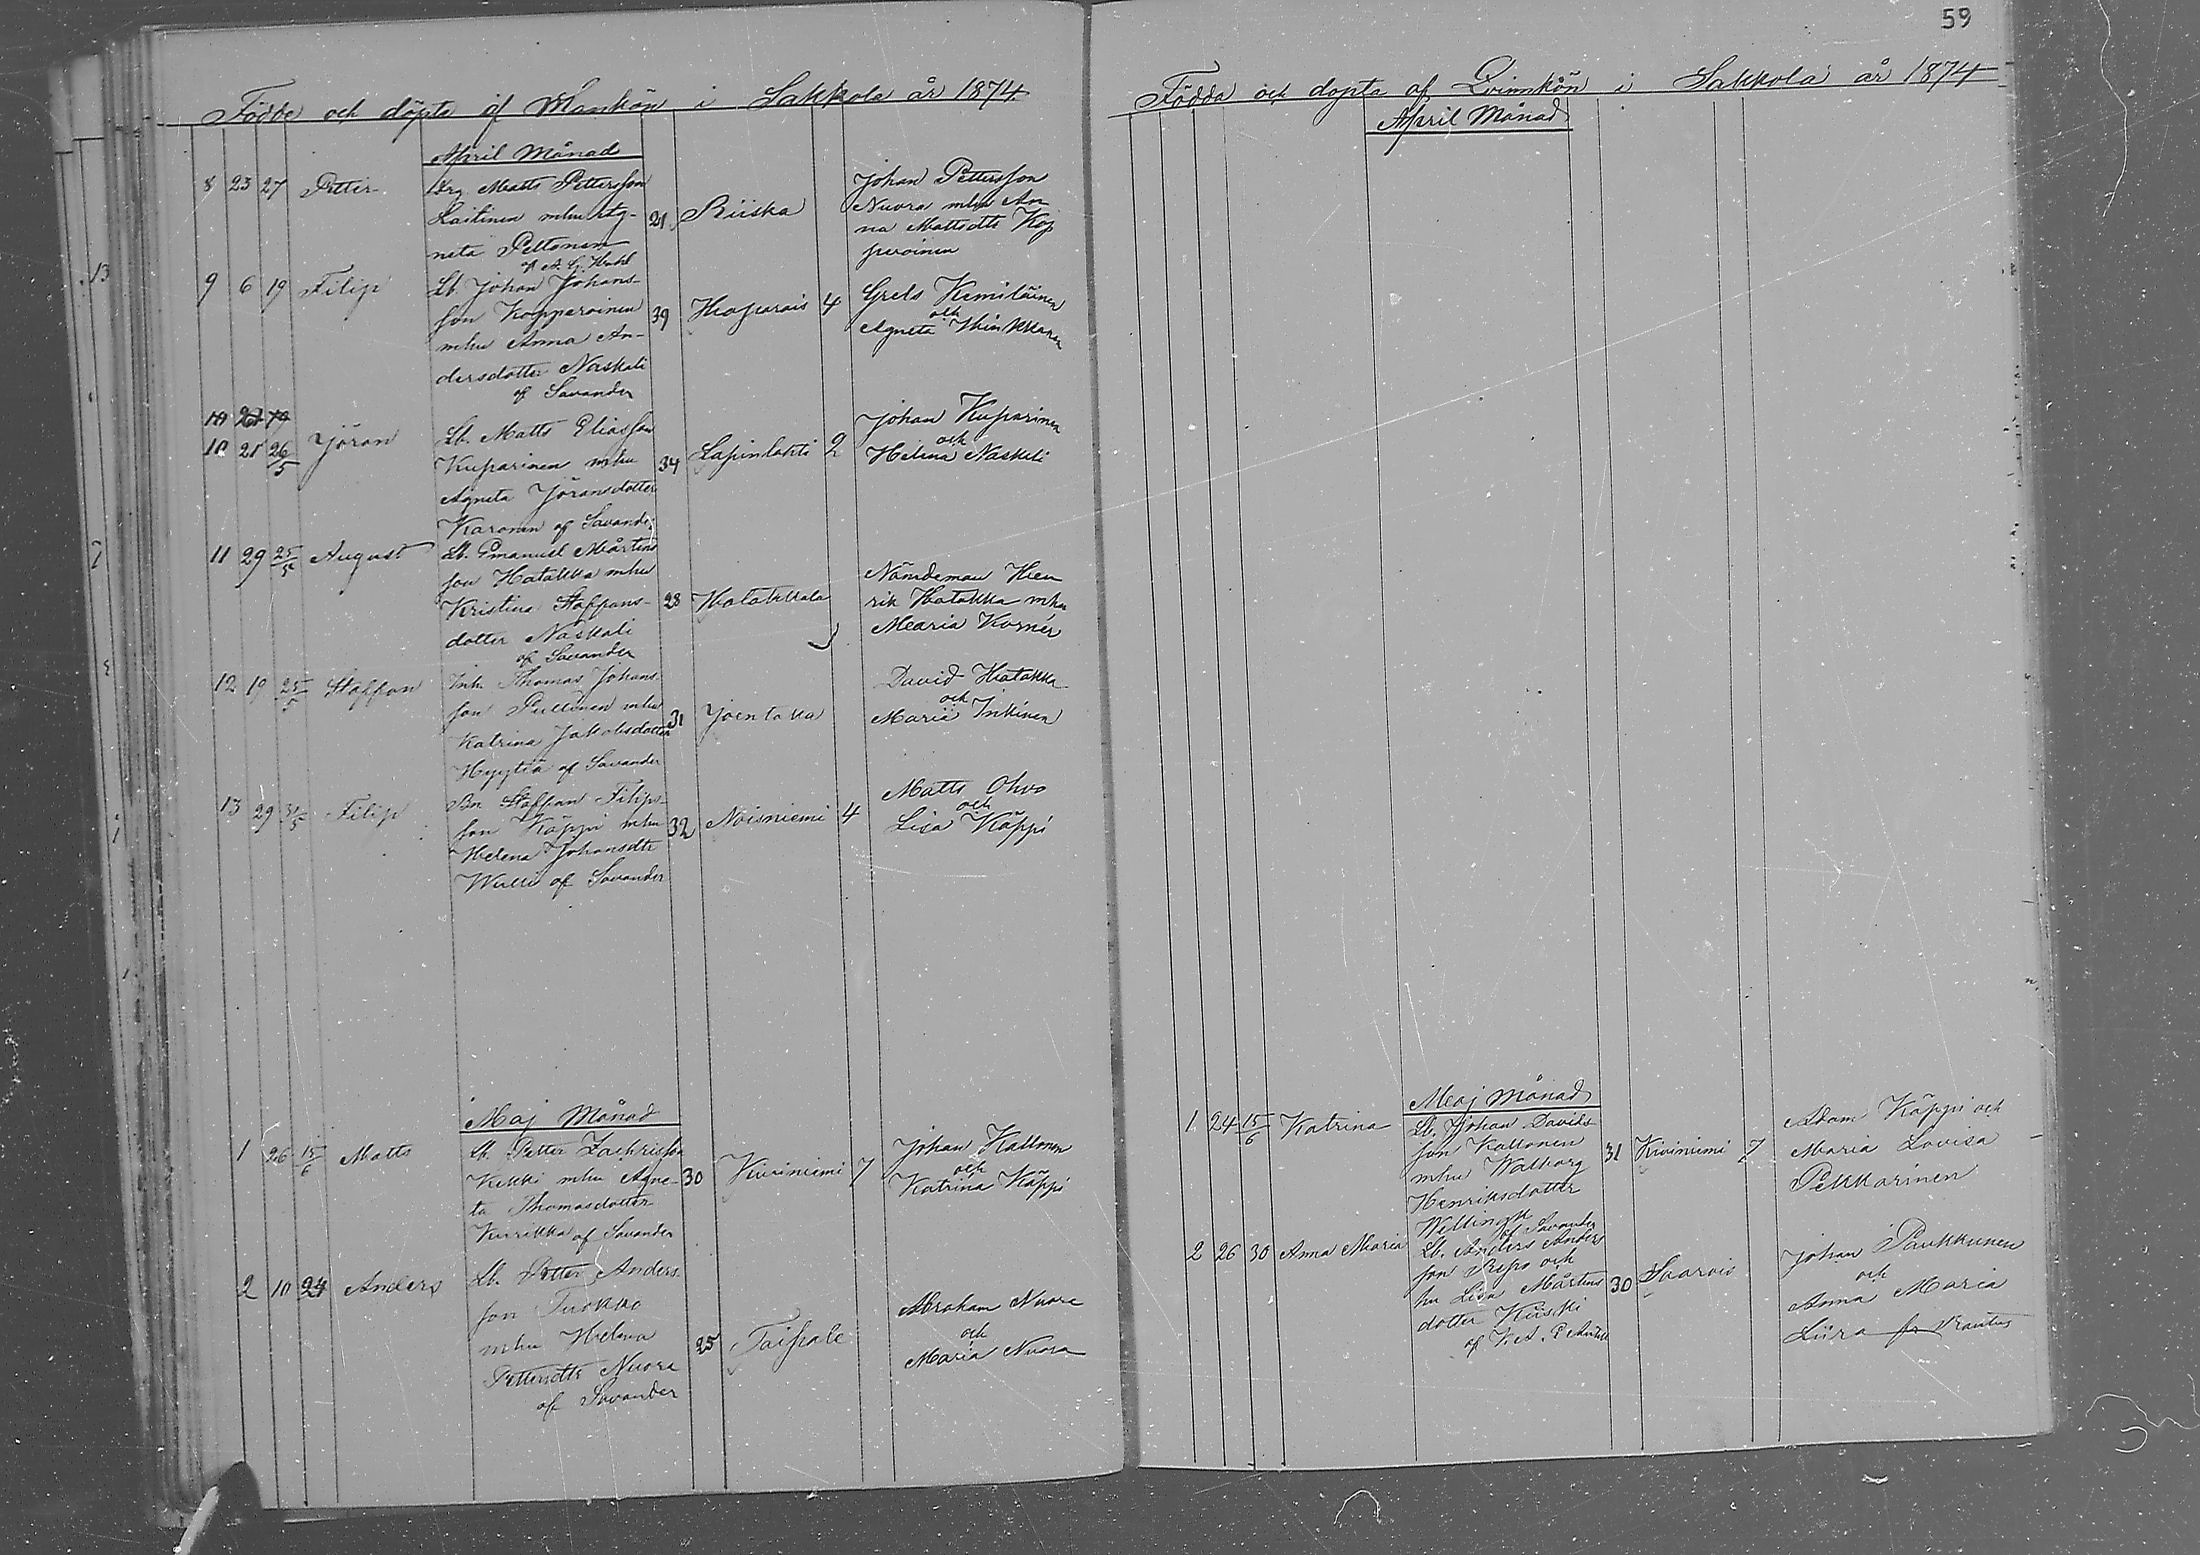 59
Födde och döpte af Mankön i Sakkola år 1874.
April Månad
8 23 27 Petter Drg Matts Pettersson
Laitinen mhu Ag-
neta Peltonen
21 Riiska
Johan Pettersson
Nuora mhu An
na Mattsdtr Kop
peroinen
9 6 19 Filip Lb. Johan Johans-
son Kopperoinen
mhu Anna An-
dersdotter Naskali
af Savander
39 Haparais 4
Grels Kemiläinen
och
Agneta
10 21 26/5 Jöran Lb. Matts Eliasson
Kuparinen mhu
Agneta Jöransdotter
Karonen af Savander
34 Lapinlahti 2
Johan Kuparinen
och
Helena Naskali
11 29 25/5 August Lb. Emanuel Mårtens
son Hatakka mhu
Kristina Staffans-
dotter Naskali
af Savander
28 Hatakkala
Nämdeman Hen
rik Hatakka mhu
Maria Kornér
12 19 25/5 Staffan Inh. Thomas Johans
son Pullinen mhu
Katrina Jakobsdotter
Hyytiä af Savander
31 Joentaka
David Hatakka
och
Maria Inkinen
13 29 31/5 Filip Bn Staffan Filips-
son Käppi mhu
Helena Johansdtr
Wulli af Savander
32 Noisniemi 4
Matts Ohvo
och
Lisa Käppi
Maj Månad
1 26 15/6 Matts Lb. Petter Zachrisson
Kekki mhu Agne-
ta Thomasdotter
Kurikka af Savander
30 Kiviniemi 7
Johan Kallonen
och
Katrina Käppi
2 10 24 Anders Lb. Petter Anders
son Tuokko
mhu Helena
Pettersdtr Nuora
af Savander
25 Taipale
Abraham Nuora
och
Maria Nuora
Födda och döpta af Qvinnkön i Sakkola år 1874
April Månad
Maj Månad
1. 24 15/6 Katrina Lb. Johan Davids
son Kallonen
mhu Walborg
Henriksdotter
Wellingk
af Savander
31 Kiviniemi 7
Adam Käppi och
Maria Lovisa
Pekkarinen
2 26 30 Anna Maria Lb. Anders Anders
son Repo och
hu Lisa Mårtens
dotter Kiiski
30 Saarois
Johan Paukkunen
och
Anna Maria
Liira Rautus